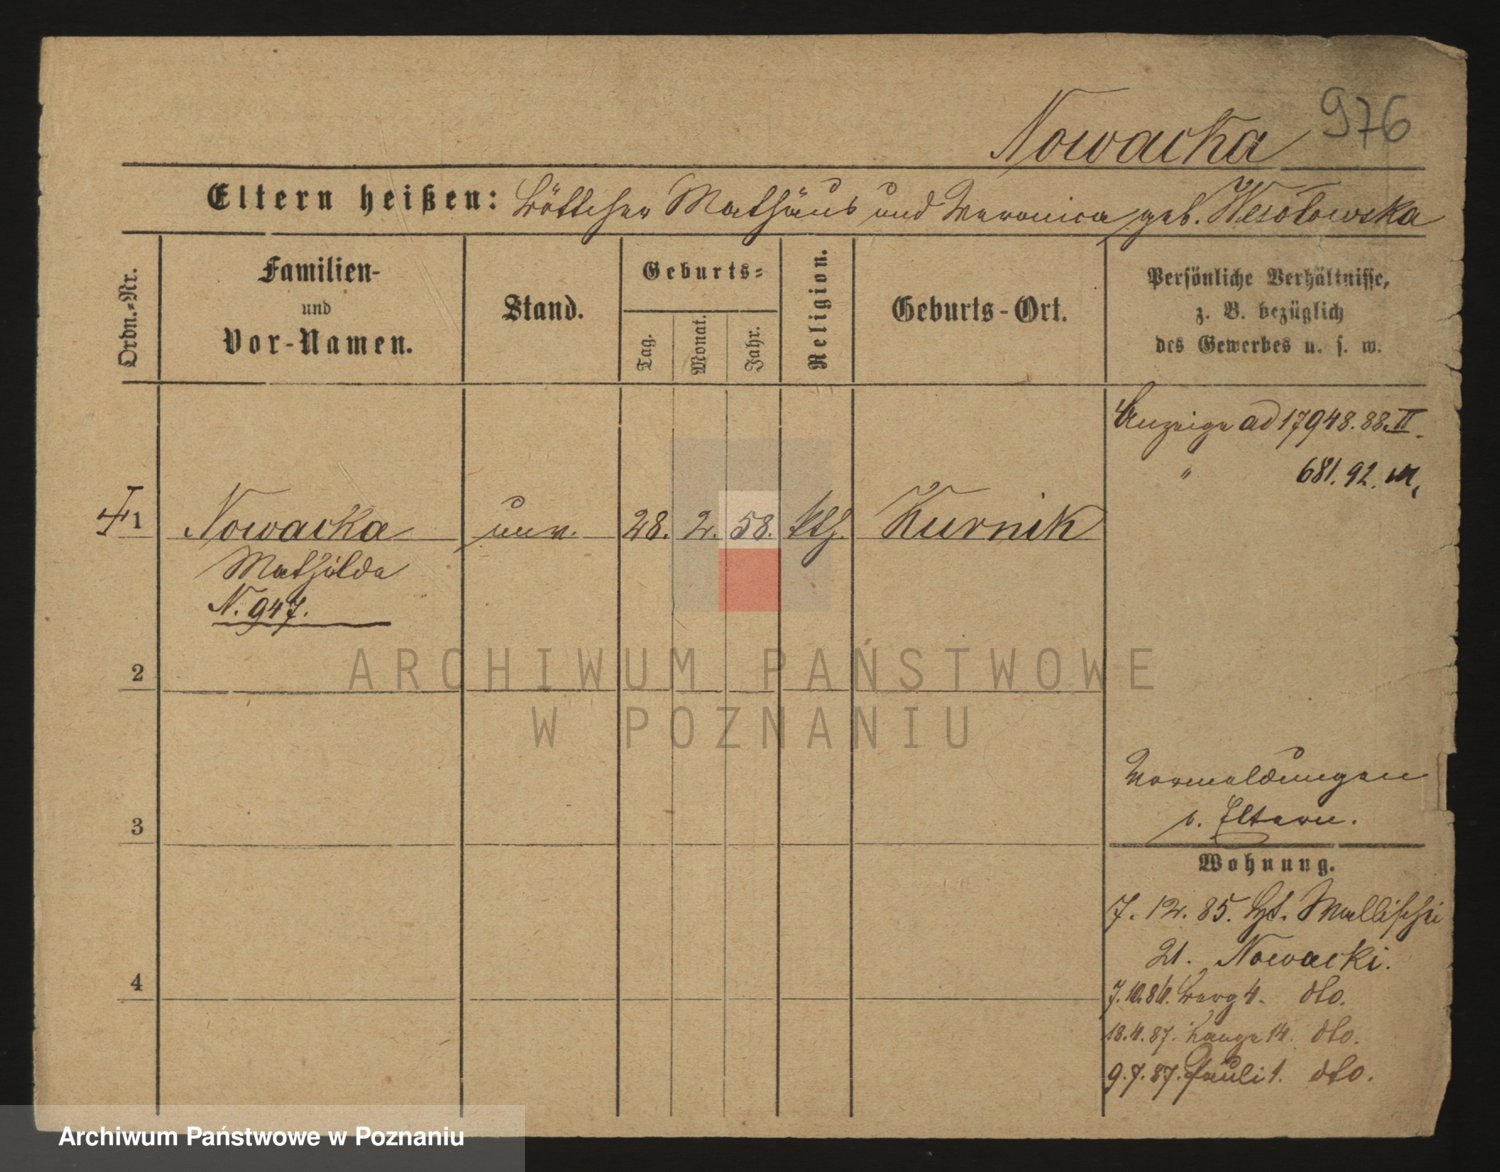 Nowacka 976
Eltern heißen: Böttcher Mathäus und Veronica geb. Wesołowska
Ordn.-Nr.
Familien-
und
Vor-Namen.
Stand.
Geburts-
Tag.
Monat.
Jahr.
Religion.
Geburts-Ort.
Persönliche Verhältnisse,
z. B. bezüglich
des Gewerbes u. s. w.
Anzeige ad 17948.88.II.
" 681.92.
1 Nowacka unv. 28. 2. 58. kth. Kurnik
Mathilde
N. 947.
2
3
4
Vormeldungen
v. Eltern.
Wohnung.
7. 12. 85. St. Mallischei
21. Nowacki.
7.10.86. Berg 4. dto.
18.4.87. Lange 14. dto.
9.7.87. Pauli 1. dto.
ARCHIWUM PAŃSTWOWE
W POZNANIU
Archiwum Państwowe w Poznaniu